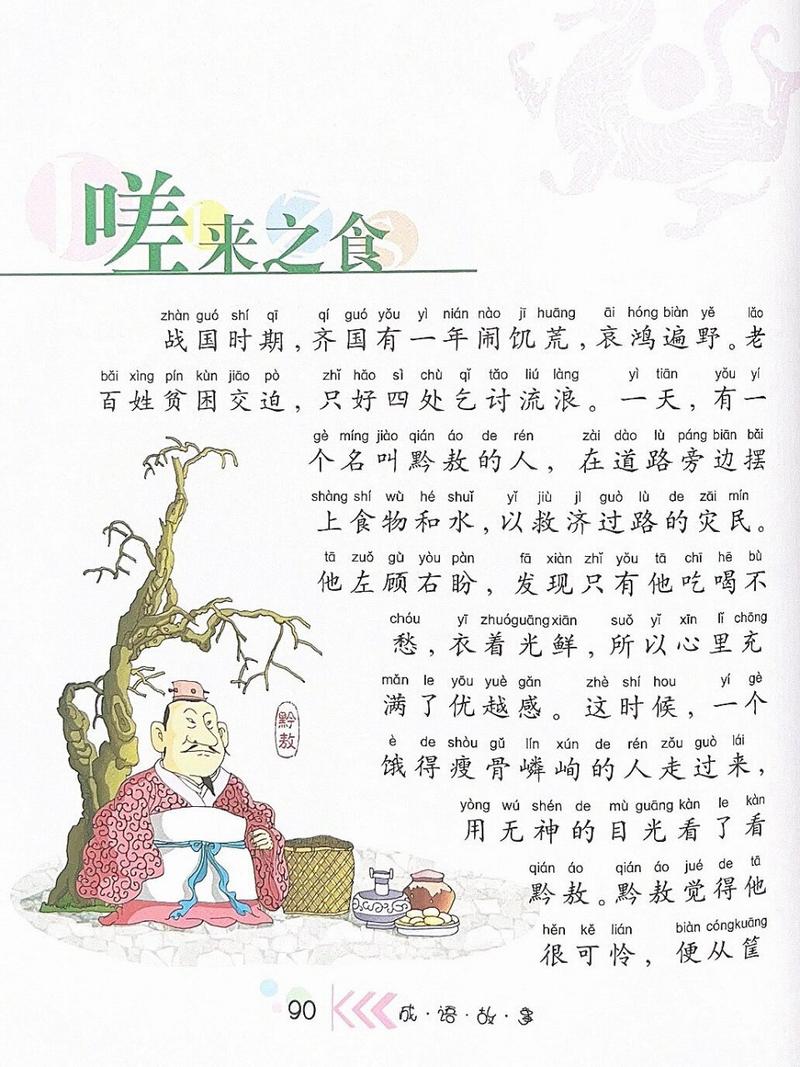 嗟来之食
zhàn guó shí qī qí guó yǒu yì nián nào jī huāng āi hóng biàn yě lǎo
战国时期，齐国有一年闹饥荒，哀鸿遍野。老
bǎi xìng pín kùn jiāo pò zhǐ hǎo sì chù qǐ tǎo liú làng yì tiān yǒu yí
百姓贫困交迫，只好四处乞讨流浪。一天，有一
gè míng jiào qián áo de rén zài dào lù páng biān bǎi
个名叫黔敖的人，在道路旁边摆
shàng shí wù hé shuǐ yǐ jiù jì guò lù de zāi mín
上食物和水，以救济过路的灾民。
tā zuǒ gù yòu pàn fā xiàn zhǐ yǒu tā chī hē bù
他左顾右盼，发现只有他吃喝不
chóu yī zhuó guāng xiān suǒ yǐ xīn lǐ chōng
愁，衣着光鲜，所以心里充
mǎn le yōu yuè gǎn zhè shí hou yí gè
满了优越感。这时候，一个
è de shòu gǔ lín xún de rén zǒu guò lái
饿得瘦骨嶙峋的人走过来，
yòng wú shén de mù guāng kàn le kàn
用无神的目光看了看
qián áo qián áo jué de tā
黔敖。黔敖觉得他
hěn kě lián biàn cóng kuāng
很可怜，便从筐
黔敖
90 成·语·故·事